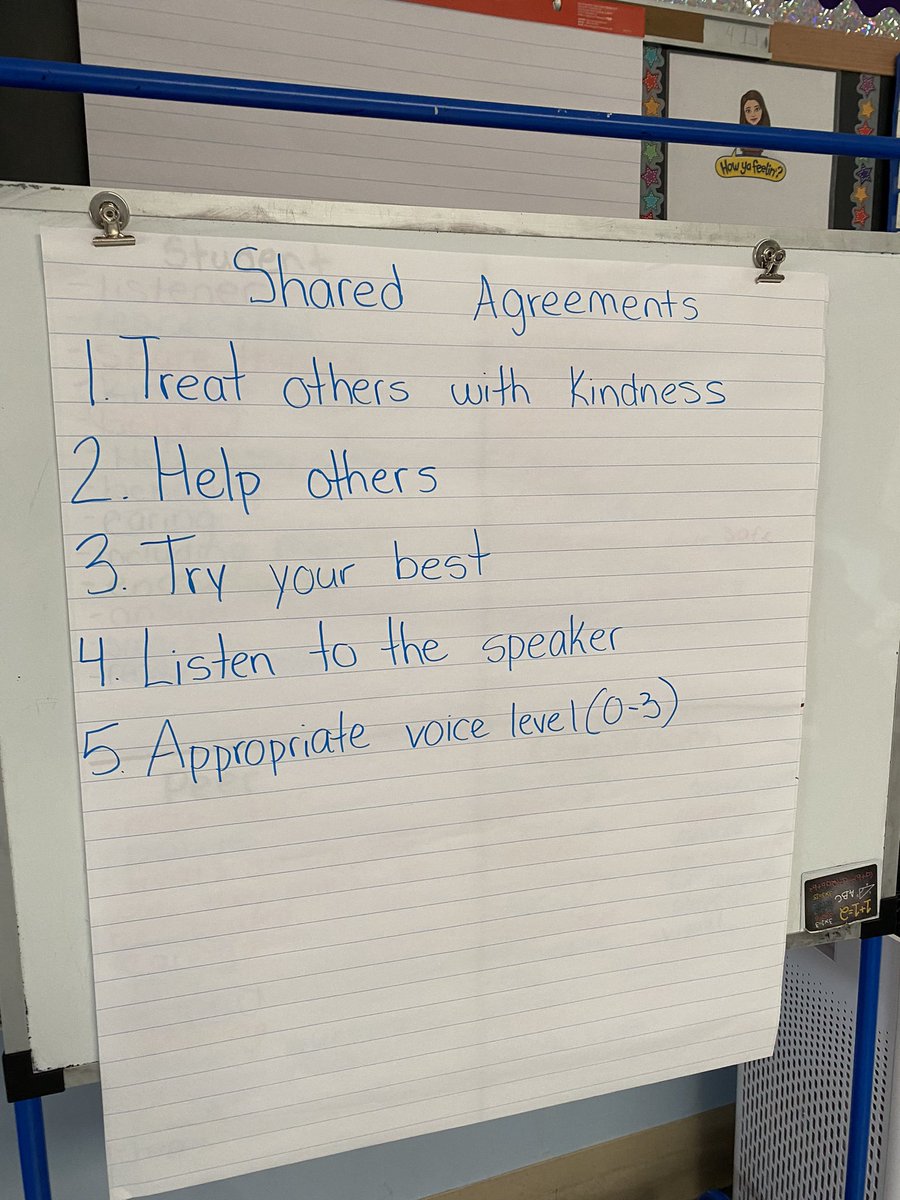 How ya feelin'?
Student
Shared Agreements
1. Treat others with Kindness
2. Help others
3. Try your best
4. Listen to the speaker
5. Appropriate voice level (0-3)
ABC
1+1=2